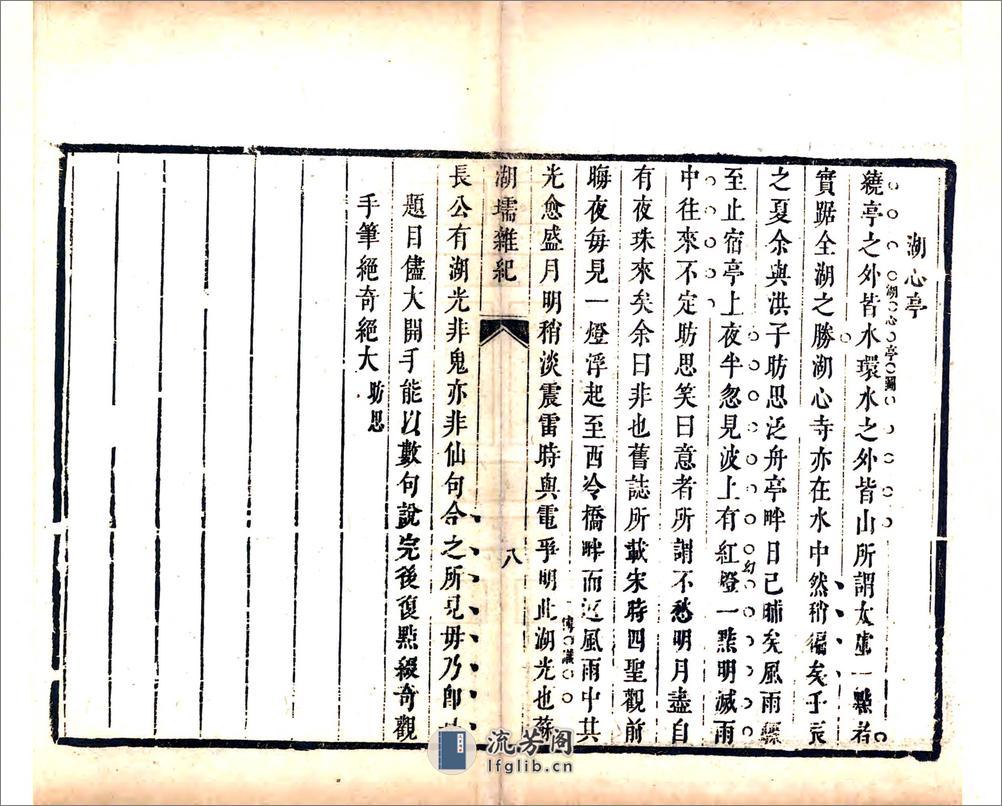 湖心亭
繞亭之外皆水環水之外皆山所謂太虛一點者
湖心亭圖
實踞全湖之勝湖心寺亦在水中然稍偏矣壬辰
之夏余與洪子昉思泛舟亭畔日已晡矣風雨驟
至止宿亭上夜半忽見波上有紅燈一點明滅雨
幻
中往來不定昉思笑曰意者所謂不愁明月盡自
有夜珠來矣余曰非也舊誌所載宋時四聖觀前
晦夜每見一燈浮起至西泠橋畔而返風雨中其
光愈盛月明稍淡震雷時與電爭明此湖光也蘇
湖壖雜紀
八
長公有湖光非鬼亦非仙句合之所見毋乃卽
題目儘大開手能以數句說完後復點綴奇觀
手筆絕奇絕大 昉思
流芳阁
lfglib.cn